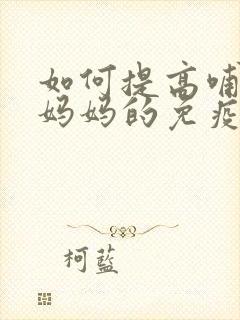 如何提高哺
妈妈的免疫
柯蓝